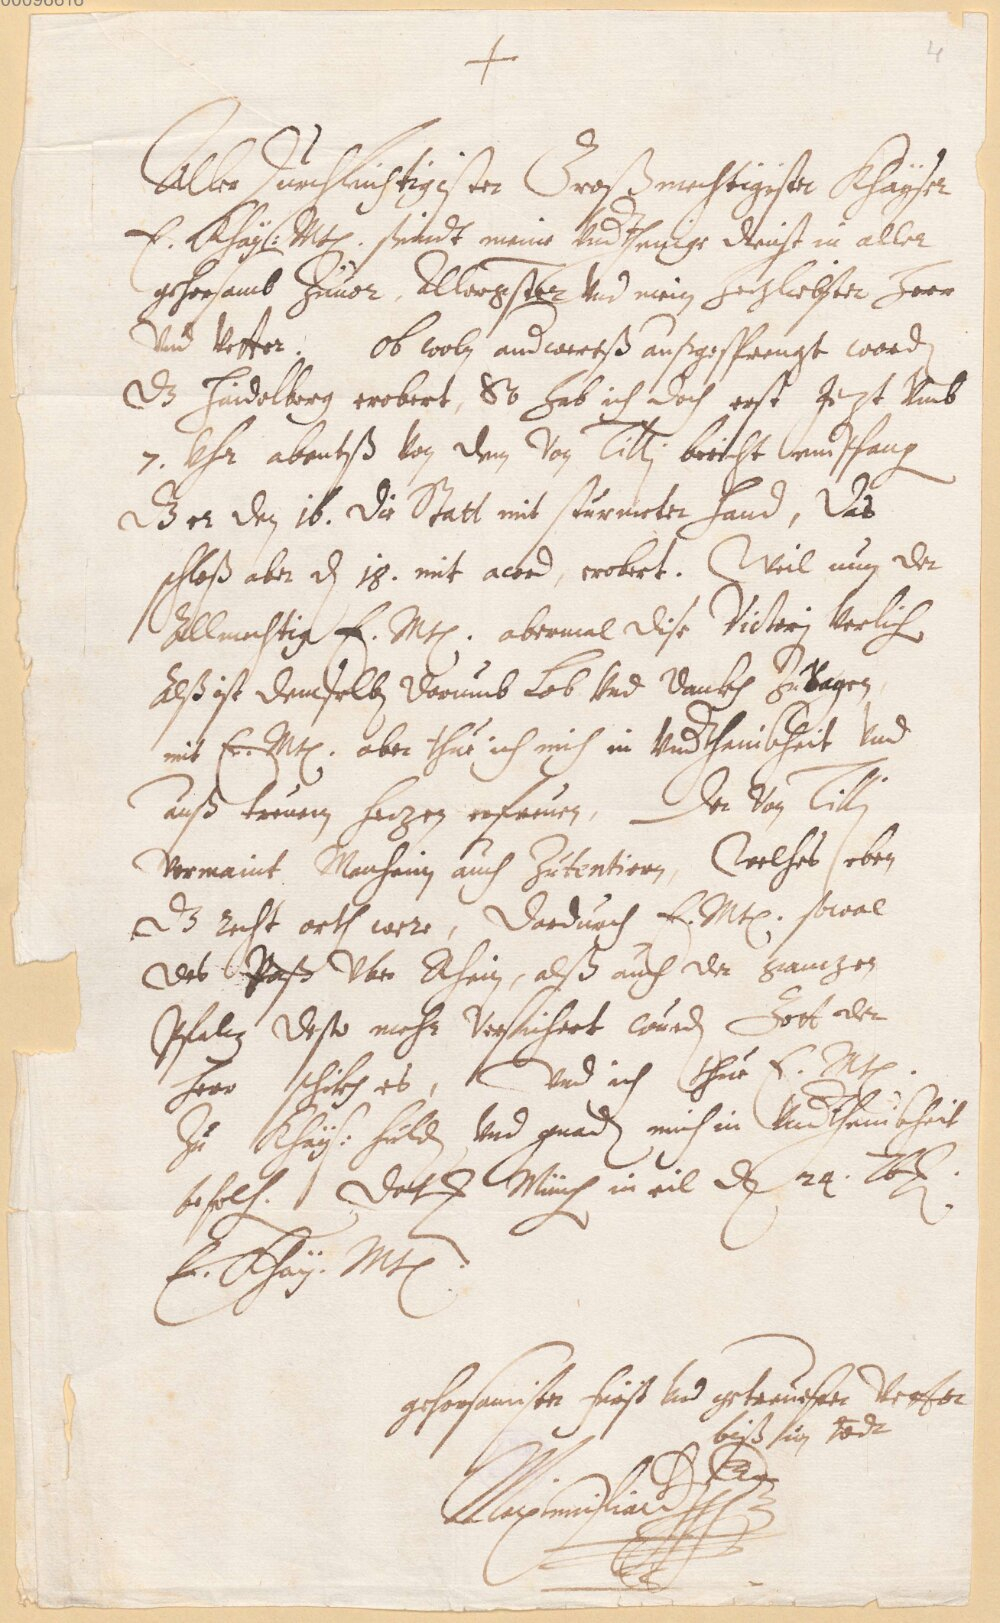 00096616
4
Aller Durchleichtigister Großmechtigister Khayser
E. Khay: Mtt. seindt meine Underthenige dienst in aller
gehorsamb Zuuor, Allergster Und mein hochliebster herr
Und Vetter. Ob woln anderwertß außgesprengt word
dz Haidelberg erobert, So hab ich doch erst Jezt Umb
7. Uhr abentß Von dem Von Tilli bericht emdpfang
dz er den 16. die Statt mit sturmeter hand, das
schloß aber d 18. mit acord, erobert. Weil nun der
Allmechtig E. Mtt. abermal dise Victori Verlich
Alß ist demselben darumb Lob Und dankh Zusagen,
mit E. Mtt. aber thue ich mich in Underthenikheit Und
auß treuem herzen erfreuen, Der Von Tilli
Vermaint Manheim auch Zutentiern, Welhes eben
dz recht orth were, dardurch E. Mtt. sowol
des Paß Uber Rhein, alß auch der ganzen
Pfalz desto mehr Versichert wurd Gott der
herr schikh es, Und ich thue E. Mtt.
Zu Khay: huld Und gnad mich in Underthenikheit
befelh. Dat Münch in eil d 24. 7b
E. Khay. Mtt.
gehorsamister fürst Und getreuester Vetter
biß in todt
Maximilian